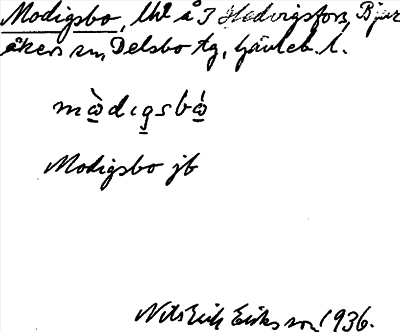 Modigsbo, lht å J Hedvigsfors, Bjur
åkers sn, Delsbo tg, Gävleb. l.
mὼdıgsbώ
Modigsbo jb
Nils Erik Eriksson 1936.